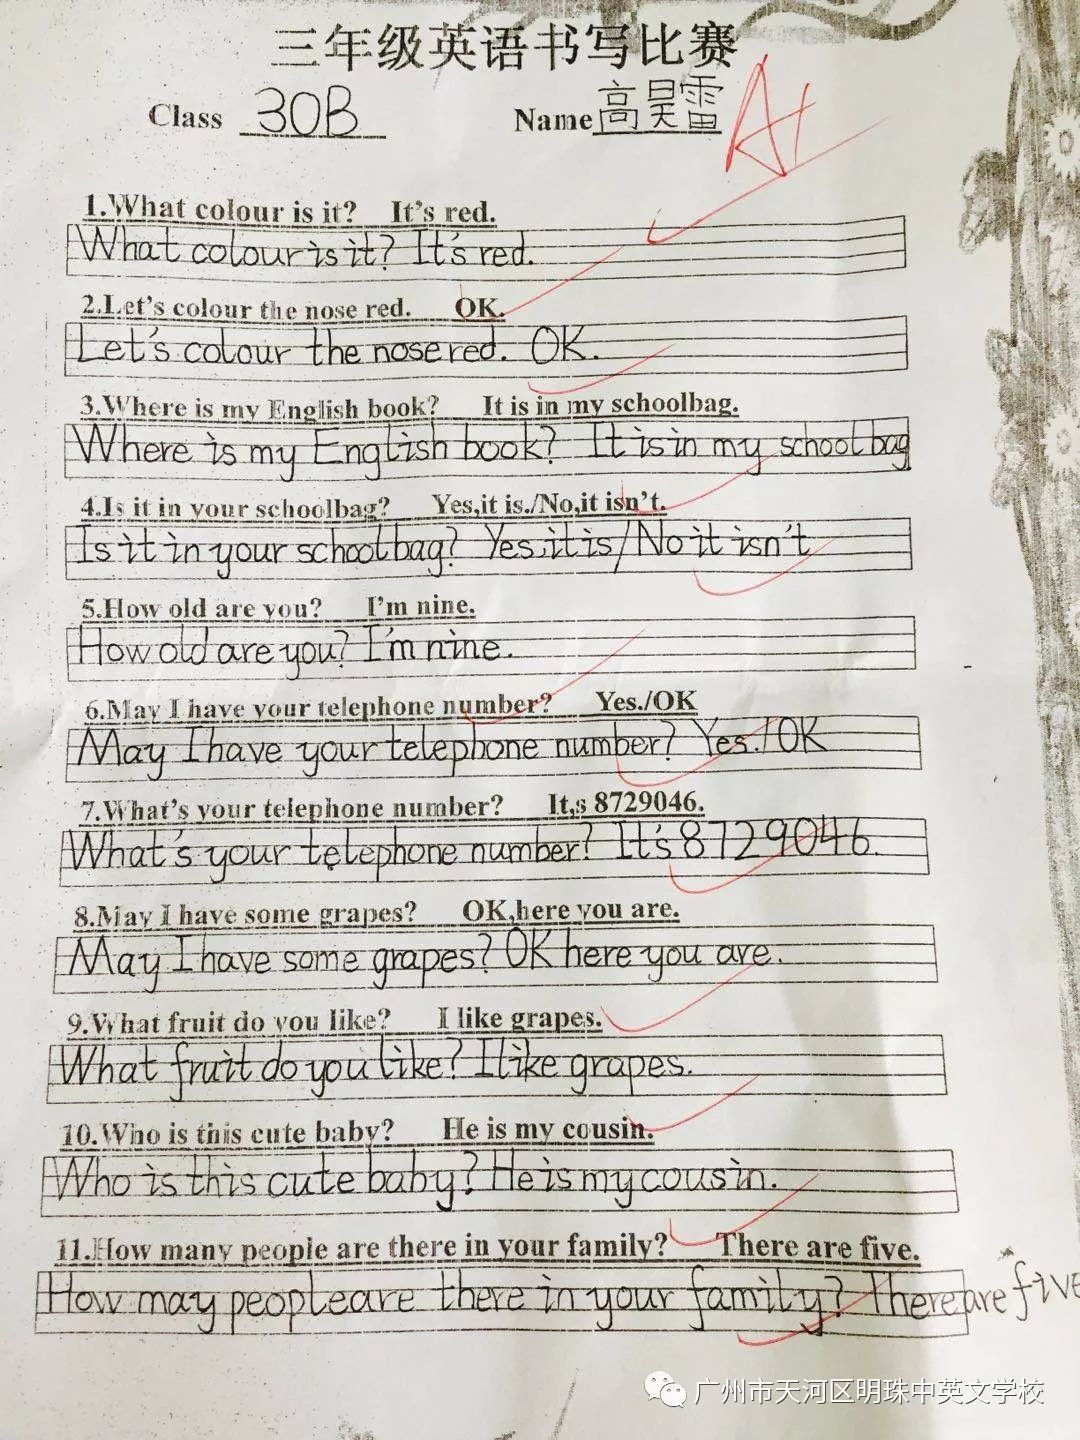 三年级英语书写比赛
Class 30B Name 高昊雷
A+
1.What colour is it? It's red.
What colour is it? It's red.
2.Let's colour the nose red. OK.
Let's colour the nose red. OK.
3.Where is my English book? It is in my schoolbag.
Where is my English book? It is in my school bag
4.Is it in your schoolbag? Yes,it is./No,it isn't.
Is it in your school bag? Yes,it is/No it isn't
5.How old are you? I'm nine.
How old are you? I'm nine.
6.May I have your telephone number? Yes./OK
May I have your telephone number? Yes./OK
7.What's your telephone number? It,s 8729046.
What's your telephone number? It's 8729046.
8.May I have some grapes? OK,here you are.
May I have some grapes? OK here you are.
9.What fruit do you like? I like grapes.
What fruit do you like? I like grapes.
10.Who is this cute baby? He is my cousin.
Who is this cute baby? He is my cousin.
11.How many people are there in your family? There are five.
How may people are there in your family? There are five
广州市天河区明珠中英文学校